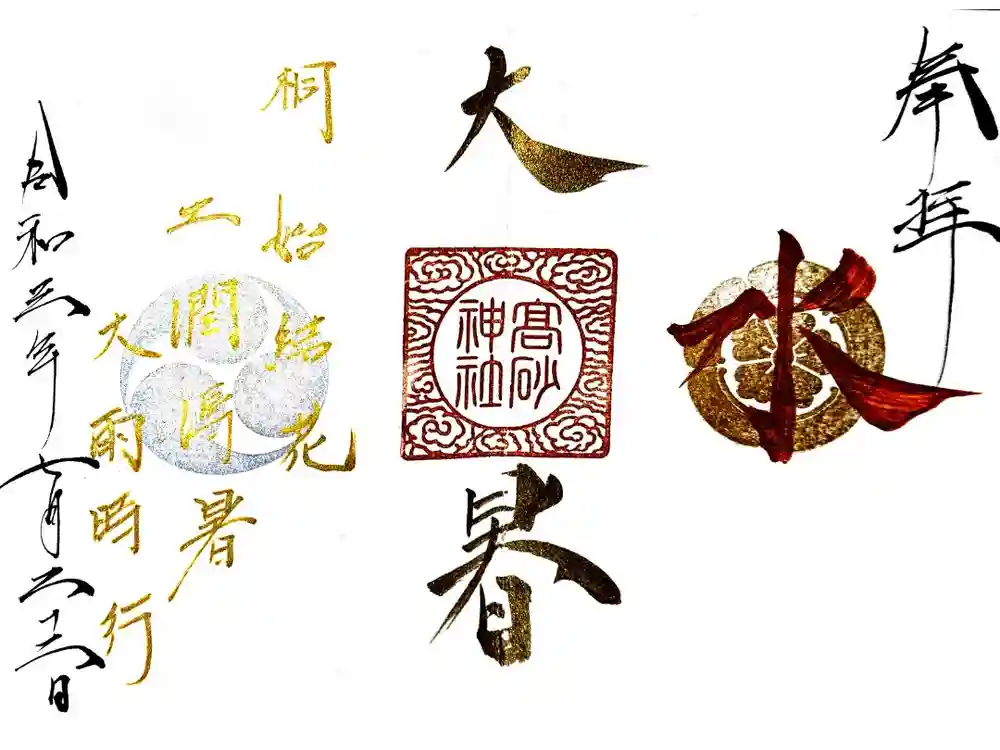 奉拝
水
大暑
髙砂
神社
桐始結花
土潤溽暑
大雨時行
令和三年七月二十二日